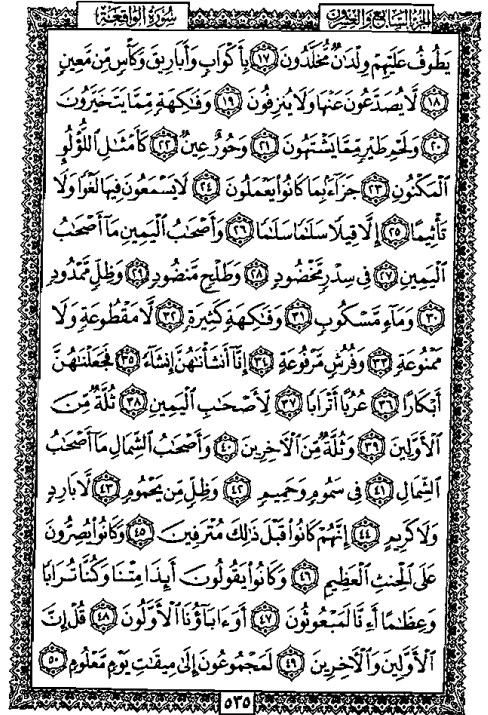 الجزء السابع والعشرون
سورة الواقعة
يَطُوفُ عَلَيْهِمْ وِلْدَٰنٌ مُّخَلَّدُونَ ١٧ بِأَكْوَابٍ وَأَبَارِيقَ وَكَأْسٍ مِّن مَّعِينٍ
١٨ لَّا يُصَدَّعُونَ عَنْهَا وَلَا يُنزِفُونَ ١٩ وَفَٰكِهَةٍ مِّمَّا يَتَخَيَّرُونَ
٢٠ وَلَحْمِ طَيْرٍ مِّمَّا يَشْتَهُونَ ٢١ وَحُورٌ عِينٌ ٢٢ كَأَمْثَٰلِ اللُّؤْلُؤِ
الْمَكْنُونِ ٢٣ جَزَآءًۢ بِمَا كَانُوا۟ يَعْمَلُونَ ٢٤ لَا يَسْمَعُونَ فِيهَا لَغْوًا وَلَا
تَأْثِيمًا ٢٥ إِلَّا قِيلًا سَلَٰمًا سَلَٰمًا ٢٦ وَأَصْحَٰبُ الْيَمِينِ مَآ أَصْحَٰبُ
الْيَمِينِ ٢٧ فِى سِدْرٍ مَّخْضُودٍ ٢٨ وَطَلْحٍ مَّنضُودٍ ٢٩ وَظِلٍّ مَّمْدُودٍ
٣٠ وَمَآءٍ مَّسْكُوبٍ ٣١ وَفَٰكِهَةٍ كَثِيرَةٍ ٣٢ لَّا مَقْطُوعَةٍ وَلَا
مَمْنُوعَةٍ ٣٣ وَفُرُشٍ مَّرْفُوعَةٍ ٣٤ إِنَّآ أَنشَأْنَٰهُنَّ إِنشَآءً ٣٥ فَجَعَلْنَٰهُنَّ
أَبْكَارًا ٣٦ عُرُبًا أَتْرَابًا ٣٧ لِّأَصْحَٰبِ الْيَمِينِ ٣٨ ثُلَّةٌ مِّنَ
الْأَوَّلِينَ ٣٩ وَثُلَّةٌ مِّنَ الْآخِرِينَ ٤٠ وَأَصْحَٰبُ الشِّمَالِ مَآ أَصْحَٰبُ
الشِّمَالِ ٤١ فِى سَمُومٍ وَحَمِيمٍ ٤٢ وَظِلٍّ مِّن يَحْمُومٍ ٤٣ لَّا بَارِدٍ
وَلَا كَرِيمٍ ٤٤ إِنَّهُمْ كَانُوا۟ قَبْلَ ذَٰلِكَ مُتْرَفِينَ ٤٥ وَكَانُوا۟ يُصِرُّونَ
عَلَى الْحِنثِ الْعَظِيمِ ٤٦ وَكَانُوا۟ يَقُولُونَ أَئِذَا مِتْنَا وَكُنَّا تُرَابًا
وَعِظَٰمًا أَءِنَّا لَمَبْعُوثُونَ ٤٧ أَوَءَابَآؤُنَا الْأَوَّلُونَ ٤٨ قُلْ إِنَّ
الْأَوَّلِينَ وَالْآخِرِينَ ٤٩ لَمَجْمُوعُونَ إِلَىٰ مِيقَٰتِ يَوْمٍ مَّعْلُومٍ ٥٠
٥٣٥